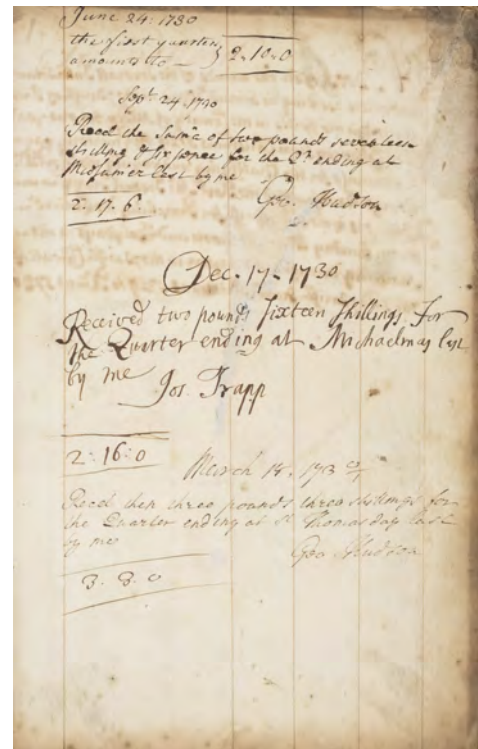 June 24: 1730
the first quarter
amounts to — } 2 " 10 " 0
Sept. 24. 1730
Recd the Sume of two pounds seventeen
shilling & six pence for the Qr. ending at
Midsumer last by me
2: 17. 6. Geo. Hudson
Dec. 17. 1730
Received two pounds sixteen shillings for
the Quarter ending at Michaelmas last
by me
Jos. Trapp
2: 16: 0
March 18. 173 0/1
Recd then three pounds three shillings for
the Quarter ending at St Thomas day last
by me
Geo Hudson
3. 3. 0